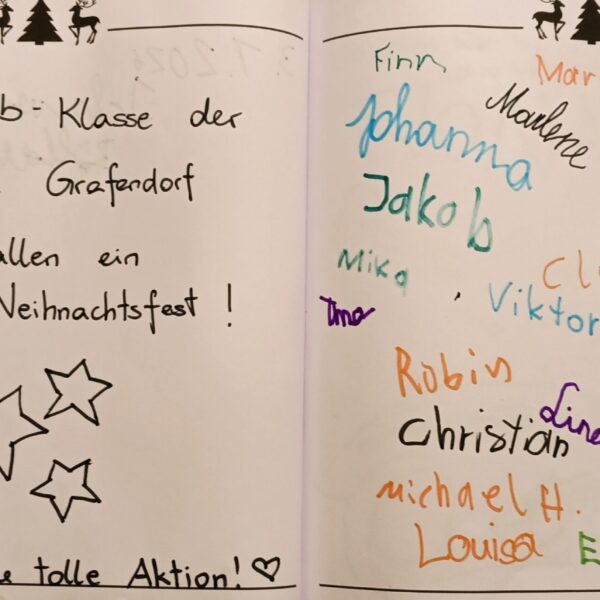 b-Klasse der
Grafendorf
allen ein
Weihnachtsfest!
tolle Aktion! ♡
Finn
Mar
Marlene
Johanna
Jakob
Mika
Cl
Viktor
Robin
Christian
Michael H.
Louisa
E